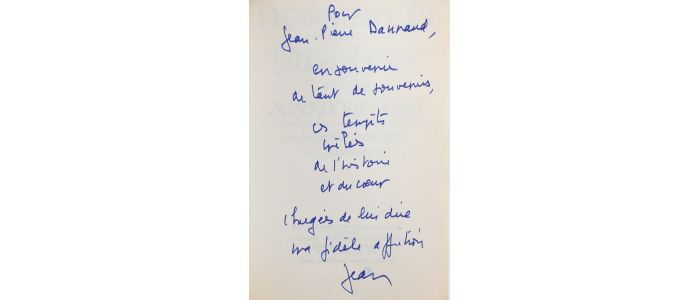 Pour
Jean-Pierre Dannaud,
en souvenir
de tant de souvenirs,
ces tempêts
mêlés
de l'histoire
et du cœur
chargées de lui dire
ma fidèle affection
Jean